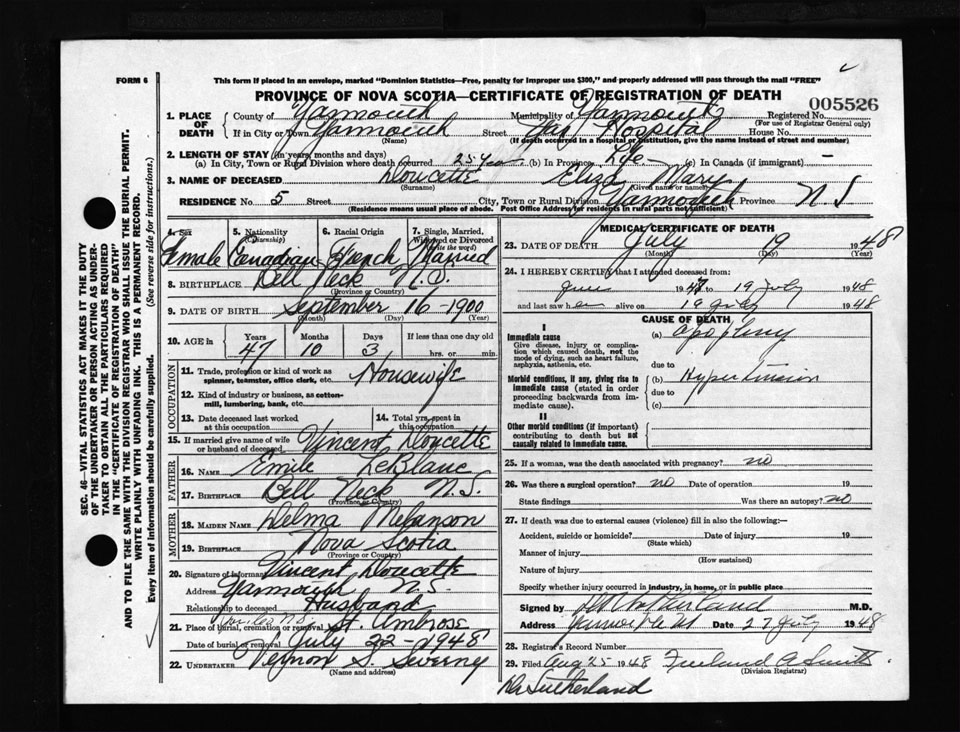 FORM 6
This form if placed in an envelope, marked "Dominion Statistics—Free, penalty for improper use $300," and properly addressed will pass through the mail "FREE"
PROVINCE OF NOVA SCOTIA—CERTIFICATE OF REGISTRATION OF DEATH
005526
1. PLACE OF DEATH
County of Yarmouth Municipality of Yarmouth Registered No.
(For use of Registrar General only)
If in City or Town Yarmouth Street Yar Hospital House No.
(Name) (If death occurred in a hospital or institution, give the name instead of street and number)
2. LENGTH OF STAY (in years months and days)
(a) In City, Town or Rural Division where death occurred 25 Year (b) In Province Life (c) In Canada (if immigrant) —
3. NAME OF DECEASED Doucette Eliza Mary
(Surname) (Given name or names)
RESIDENCE No. 5 Street City, Town or Rural Division Yarmouth Province N S
(Residence means usual place of abode. Post Office Address for residents in rural parts not sufficient)
4. Sex
Female
5. Nationality (Citizenship)
Canadian
6. Racial Origin
French
7. Single, Married, Widowed or Divorced (Write the word)
Married
8. BIRTHPLACE Bell Neck N.S.
(Province or Country)
9. DATE OF BIRTH September 16 - 1900
(Month) (Day) (Year)
10. AGE in Years Months Days If less than one day old
47 10 3 hrs. or min.
OCCUPATION
11. Trade, profession or kind of work as spinner, teamster, office clerk, etc. Housewife
12. Kind of industry or business, as cotton-mill, lumbering, bank, etc.
13. Date deceased last worked at this occupation
14. Total yrs. spent in this occupation
15. If married give name of wife or husband of deceased. Vincent Doucette
FATHER
16. NAME Emile LeBlanc
17. BIRTHPLACE Bell Neck N.S.
(Province or Country)
MOTHER
18. MAIDEN NAME Delma Melanson
19. BIRTHPLACE Nova Scotia
(Province or Country)
20. Signature of informant Vincent Doucette
Address Yarmouth N.S.
Relationship to deceased Husband
21. Place of burial, cremation or removal St. Ambrose
Date of burial or removal July 22 - 1948
22. UNDERTAKER Vernon S. Sweeney
(Name and address)
MEDICAL CERTIFICATE OF DEATH
23. DATE OF DEATH July 19 1948
(Month) (Day) (Year)
24. I HEREBY CERTIFY that I attended deceased from:
June 1947 to 19 July 1948
and last saw her alive on 19 July 1948
CAUSE OF DEATH
I
Immediate cause
Give disease, injury or complication which caused death, not the mode of dying, such as heart failure, asphyxia, asthenia, etc.
(a) Apoplexy
due to
Morbid conditions, if any, giving rise to immediate cause (stated in order proceeding backwards from immediate cause).
(b) Hypertension
due to
(c)
II
Other morbid conditions (if important) contributing to death but not causally related to immediate cause.
25. If a woman, was the death associated with pregnancy? no
26. Was there a surgical operation? no Date of operation 19
State findings Was there an autopsy? no
27. If death was due to external causes (violence) fill in also the following:
Accident, suicide or homicide? Date of injury 19
(State which)
Manner of injury
(How sustained)
Nature of injury
Specify whether injury occurred in industry, in home, or in public place
Signed by M.D.
Address Yarmouth NS Date 27 July 1948
28. Registrar's Record Number
29. Filed Aug 25 1948 Freeland A Smith
(Division Registrar)
Dr Sutherland
SEC. 46—VITAL STATISTICS ACT MAKES IT THE DUTY OF THE UNDERTAKER OR PERSON ACTING AS UNDERTAKER TO OBTAIN ALL THE PARTICULARS REQUIRED IN THE "CERTIFICATE OF REGISTRATION OF DEATH" AND TO FILE THE SAME WITH THE DIVISION REGISTRAR WHO SHALL ISSUE THE BURIAL PERMIT.
WRITE PLAINLY WITH UNFADING INK. THIS IS A PERMANENT RECORD.
Every item of information should be carefully supplied. (See reverse side for instructions.)